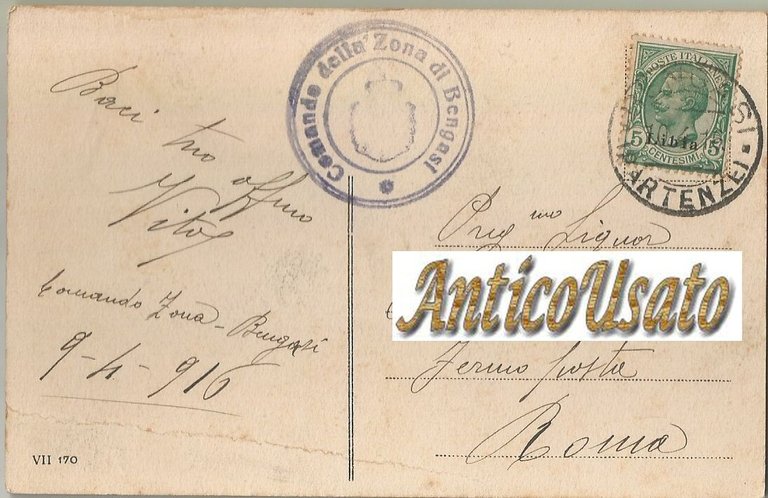 Baci tuo affmo
Vitos
Comando Zona - Bengasi
9-4-916
VII 170
Comando della Zona di Bengasi
POSTE ITALIANE
Libia
5 5
CENTESIMI
ARTENZE
Preg mo Signor
AnticoUsato
Fermo posta
Roma